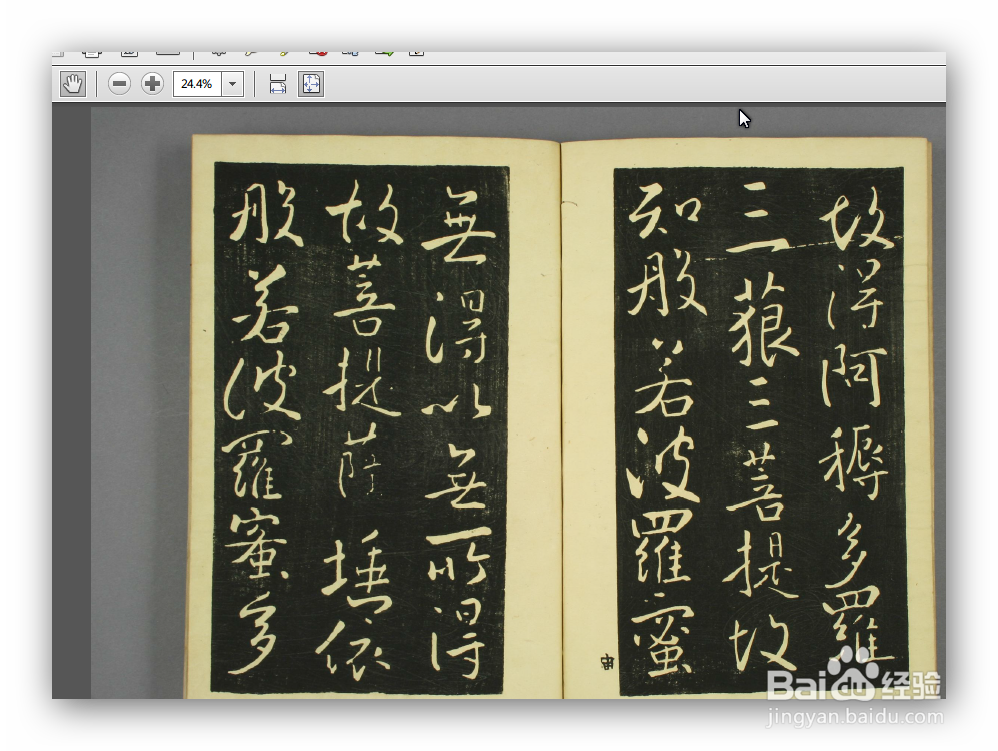 24.4%
故得阿耨多羅
三藐三菩提故
知般若波羅蜜
無得以無所得
故菩提薩埵依
般若波羅蜜多
Baidu 经验
jingyan.baidu.com